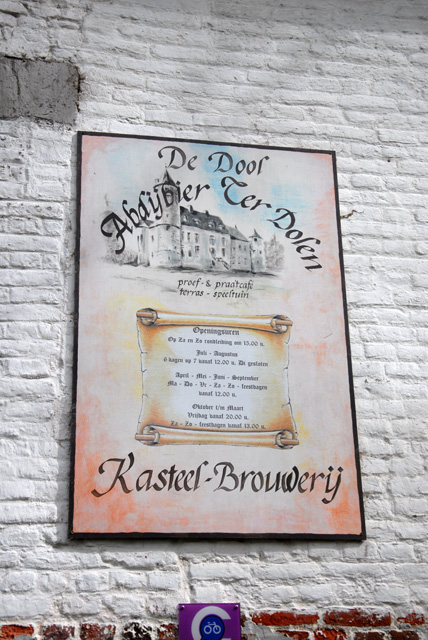 De Dool
Abdijbier Ter Dolen
proef - & praatcafé
terras - speeltuin
Openingsuren
Op Za en Zo rondleiding om 15.00 u.
Juli - Augustus
6 dagen op 7 vanaf 12.00 u. Di gesloten
April - Mei - Juni - September
Ma - Do - Vr - Za - Zo - feestdagen
vanaf 12.00 u.
Oktober t/m Maart
Vrijdag vanaf 20.00 u
Za - Zo - feestdagen vanaf 13.00 u.
Kasteel-Brouwerij